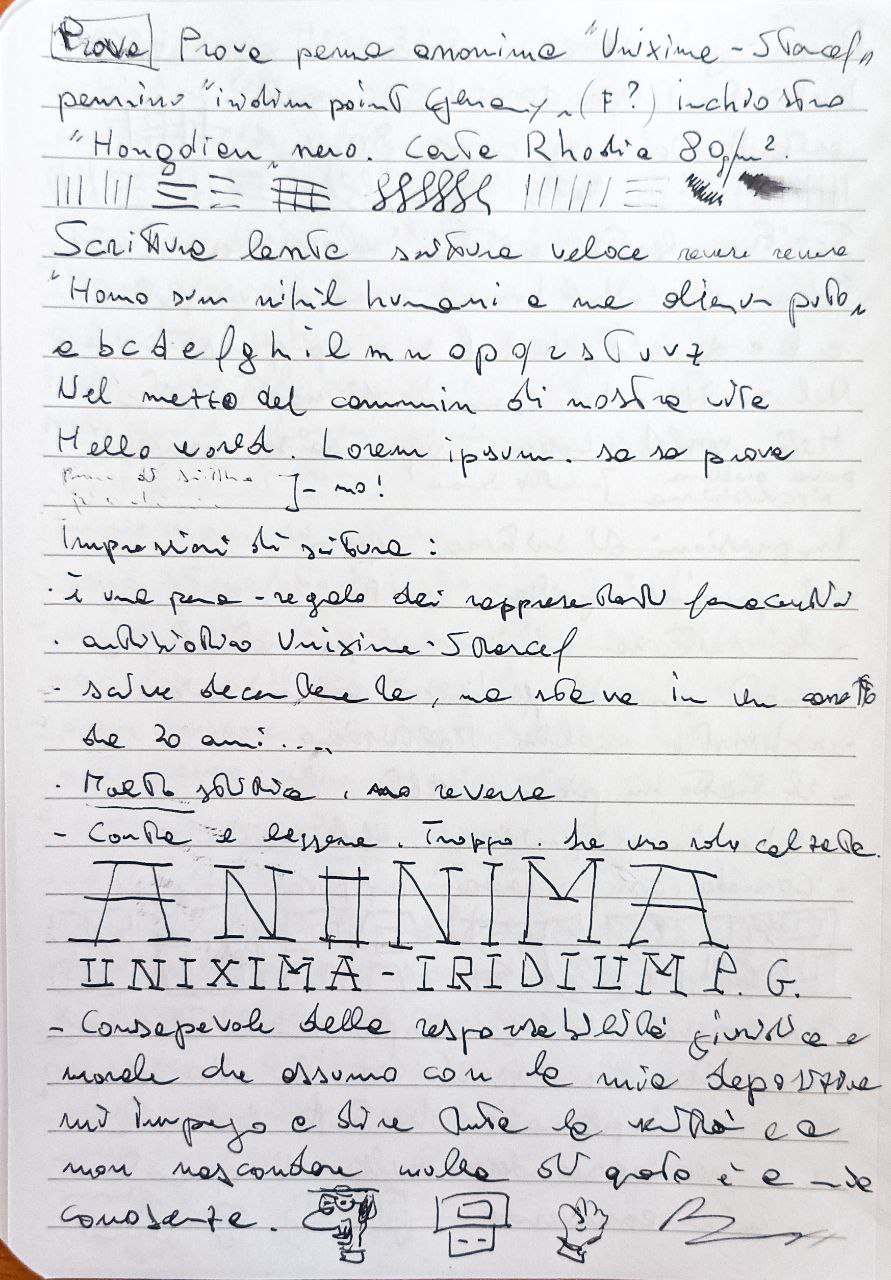 Prova Prova penna anonima "Unixime - Starcef"
pennino "iridium point Germany" (F?) inchiostro
"Hongdian" nero. Carta Rhodia 80 g/m².
Scrittura lenta scrittura veloce reverse reverse
"Homo sum nihil humani a me alienum puto"
a b c d e f g h i l m n o p q r s t u v z
Nel mezzo del cammin di nostra vita
Hello world. Lorem ipsum. sa sa prova
Prova di scrittura ]- no!
Impressioni di scrittura:
. è una penna-regalo dei rappresentanti farmaceutici
. antibiotico Unixime-Starcef
- scrive decentemente, ma stava in un cassetto
da 20 anni....
. Molto stitica, no reverse
- Corta e leggera. Troppo. La uso solo calzata.
ANONIMA
UNIXIMA-IRIDIUM P. G.
- Consapevole della responsabilità giuridica e
morale che assumo con la mia deposizione
mi impegno a dire tutta la verità e a
non nascondere nulla di quanto è a mia
conoscenza.